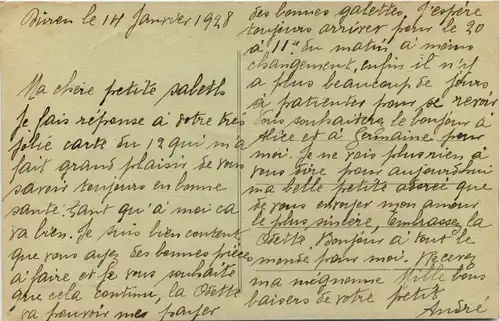 Düren le 14 Janvier 1928
Ma chère petite Isabelle
Je fais réponse à votre très
jolie carte du 12 qui m'a
fait grand plaisir de vous
savoir toujours en bonne
santé. Tant qu'à moi ca
va bien. Je suis bien content
que vous ayez des bonnes pièces
à faire et je vous souhaite
que cela continu, la Odette
va pouvoir nous payer
des bonnes galettes, j'espère
toujours arriver pour le 20
à 11h du matin à moins
changement, enfin il n'y
a plus beaucoup de jours
à patienter pour se revoir
Vous souhaiterez le bonjour à
Alice et à Germaine pour
moi. Je ne vois plus rien à
vous dire pour aujourd'hui
ma belle petite adorée que
de vous envoyer mon amour
le plus sincère, Embrassez la
Odette, Bonjour à tout le
monde pour moi. Recevez
ma mignonne Mille bons
baisers de votre petit
André